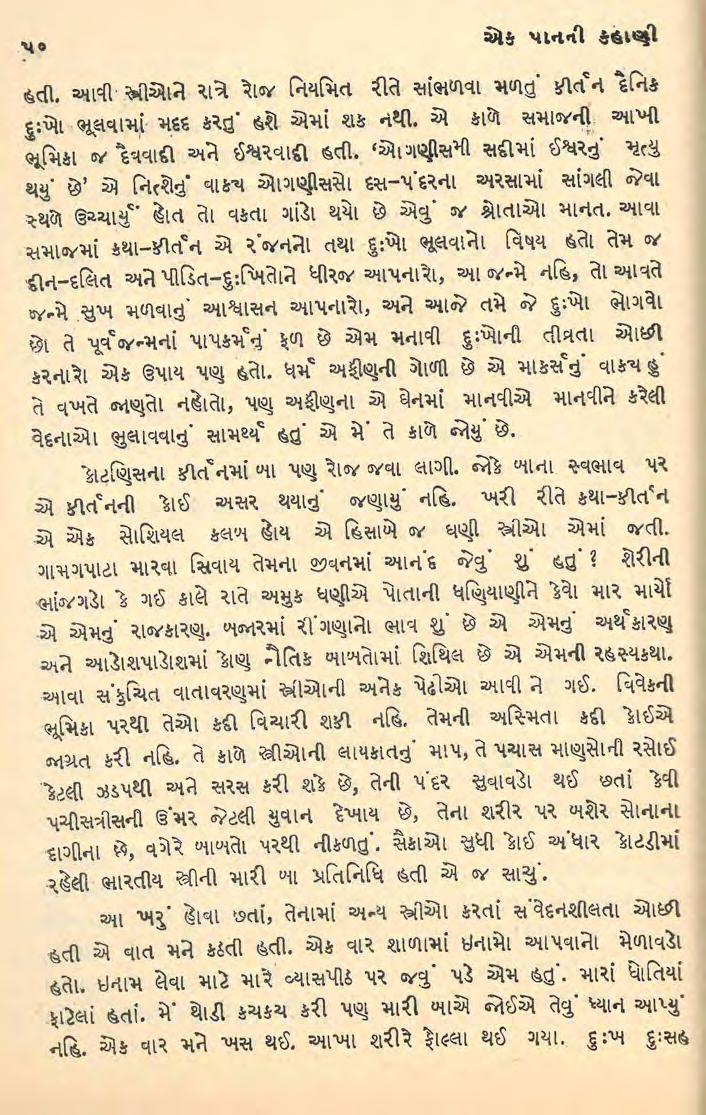 ૫૦
એક પાનની કહાણી
હતી. આવી સ્ત્રીઓને રાત્રે રોજ નિયમિત રીતે સાંભળવા મળતું કીર્તન દૈનિક
દુઃખો ભૂલવામાં મદદ કરતું હશે એમાં શક નથી. એ કાળે સમાજની આખી
ભૂમિકા જ દૈવવાદી અને ઈશ્વરવાદી હતી. ‘ઓગણીસમી સદીમાં ઈશ્વરનું મૃત્યુ
થયું છે’ એ નિત્શેનું વાક્ય ઓગણીસસો દસ-પંદરના અરસામાં સાંગલી જેવા
સ્થળે ઉચ્ચાર્યું હોત તો વક્તા ગાંડો થયો છે એવું જ શ્રોતાઓ માનત. આવા
સમાજમાં કથા-કીર્તન એ રંજનનો તથા દુઃખો ભૂલવાનો વિષય હતો તેમ જ
દીન-દલિત અને પીડિત-દુઃખિતોને ધીરજ આપનારો, આ જન્મે નહિ, તો આવતે
જન્મે સુખ મળવાનું આશ્વાસન આપનારો, અને આજે તમે જે દુઃખો ભોગવો
છો તે પૂર્વજન્મનાં પાપકર્મનું ફળ છે એમ મનાવી દુઃખોની તીવ્રતા ઓછી
કરનારો એક ઉપાય પણ હતો. ધર્મ અફીણની ગોળી છે એ માર્ક્સનું વાક્ય હું
તે વખતે જાણતો નહોતો, પણ અફીણના એ ઘેનમાં માનવીએ માનવીને કરેલી
વેદનાઓ ભુલાવવાનું સામર્થ્ય હતું એ મેં તે કાળે જોયું છે.
કોટણિસના કીર્તનમાં બા પણ રોજ જવા લાગી. જોકે બાના સ્વભાવ પર
એ કીર્તનની કોઈ અસર થયાનું જણાયું નહિ. ખરી રીતે કથા-કીર્તન
એ એક સોશિયલ કલબ હોય એ હિસાબે જ ઘણી સ્ત્રીઓ એમાં જતી.
ગામગપાટા મારવા સિવાય તેમના જીવનમાં આનંદ જેવું શું હતું ? શેરીની
ભાંજગડો કે ગઈ કાલે રાતે અમુક ધણીએ પોતાની ધણિયાણીને કેવો માર માર્યો
એ એમનું રાજકારણ. બજારમાં રીંગણાનો ભાવ શું છે એ એમનું અર્થકારણ
અને આડોશપાડોશમાં કોણ નૈતિક બાબતોમાં શિથિલ છે એ એમની રહસ્યકથા.
આવા સંકુચિત વાતાવરણમાં સ્ત્રીઓની અનેક પેઢીઓ આવી ને ગઈ. વિવેકની
ભૂમિકા પરથી તેઓ કદી વિચારી શકી નહિ. તેમની અસ્મિતા કદી કોઈએ
જાગ્રત કરી નહિ. તે કાળે સ્ત્રીઓની લાયકાતનું માપ, તે પચાસ માણસોની રસોઈ
કેટલી ઝડપથી અને સરસ કરી શકે છે, તેની પંદર સુવાવડો થઈ છતાં કેવી
પચીસત્રીસની ઉંમર જેટલી યુવાન દેખાય છે, તેના શરીર પર બશેર સોનાના
દાગીના છે, વગેરે બાબતો પરથી નીકળતું. સૈકાઓ સુધી કોઈ અંધાર કોટડીમાં
રહેલી ભારતીય સ્ત્રીની મારી બા પ્રતિનિધિ હતી એ જ સાચું.
આ ખરું હોવા છતાં, તેનામાં અન્ય સ્ત્રીઓ કરતાં સંવેદનશીલતા ઓછી
હતી એ વાત મને કઠતી હતી. એક વાર શાળામાં ઇનામો આપવાનો મેળાવડો
હતો. ઇનામ લેવા માટે મારે વ્યાસપીઠ પર જવું પડે એમ હતું. મારાં ધોતિયાં
ફાટેલાં હતાં. મેં થોડી કચકચ કરી પણ મારી બાએ જોઈએ તેવું ધ્યાન આપ્યું
નહિ. એક વાર મને ખસ થઈ. આખા શરીરે ફોલ્લા થઈ ગયા. દુઃખ દુઃસહ